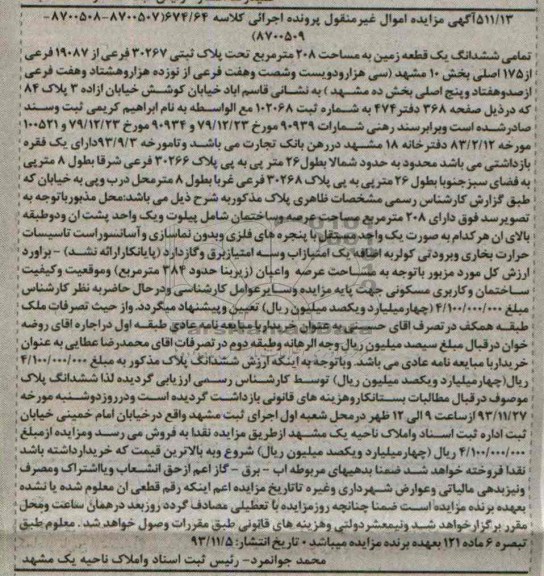 ۵۱۱/۱۳آگهی مزایده اموال غیرمنقول پرونده اجرائی کلاسه ۶۷۴/۶۴(۸۷۰۰۵۰۷-۸۷۰۰۵۰۸-
۸۷۰۰۵۰۹)
تمامی ششدانگ یک قطعه زمین به مساحت ۲۰۸ مترمربع تحت پلاک ثبتی ۳۰۲۶۷ فرعی از ۱۹۰۸۷ فرعی
از۱۷۵ اصلی بخش ۱۰ مشهد (سی هزارودویست وشصت وهفت فرعی از نوزده هزاروهشتاد وهفت فرعی
ازصدوهفتاد و پنج اصلی بخش ده مشهد ) به نشانی قاسم اباد خیابان کوشش خیابان ازاده ۳ پلاک ۸۴
که درذیل صفحه ۳۶۸ دفتر۴۷۴ به شماره ثبت ۱۰۲۰۶۸ مع الواسطه به نام ابراهیم کریمی ثبت وسند
صادرشده است وبرابرسند رهنی شمارات ۹۰۹۳۹ مورخ ۷۹/۱۲/۲۳ و ۹۰۹۳۴ مورخ ۷۹/۱۲/۲۳ و ۱۰۰۵۳۱
مورخه ۸۳/۲/۱۲ دفترخانه ۱۸ مشهد دررهن بانک تجارت می باشد وتامورخه ۹۳/۹/۳دارای یک فقره
بازداشتی می باشد محدود به حدود شمالا بطول۲۶ متر پی به پی پلاک ۳۰۲۶۶ فرعی شرقا بطول ۸ مترپی
به فضای سبزجنوبا بطول ۲۶ مترپی به پی پلاک ۳۰۲۶۸ فرعی غربا بطول ۸ مترمحل درب وپی به خیابان که
طبق گزارش کارشناس رسمی مشخصات ظاهری پلاک مذکوربه شرح ذیل می باشد:محل مذبورباتوجه به
تصویرسد فوق دارای ۲۰۸ مترمربع مساحت عرصه وساختمان شامل پیلوت ویک واحد پشت ان ودوطبقه
بالای ان هرکدام به صورت یک واحد مستقل با پنجره های فلزی وبدون نماسازی وآسانسوراست تاسیسات
حرارت بخاری وبرودتی کولربه اضافه یک امتیازاب وسه امتیازبرق وگازدارد (پایانکارارائه نشد) – براورد
ارزش کل مورد مزبور باتوجه به مساحت عرصه واعیان (زیربنا حدود ۳۸۴ مترمربع) وموقعیت وکیفیت
ساختمان وکاربری مسکونی جهت پایه مزایده وسایرعوامل کارشناسی ودرحال حاضربه نظر کارشناس
مبلغ ۴/۱۰۰/۰۰۰/۰۰۰ (چهارمیلیارد ویکصد میلیون ریال) تعیین وپیشنهاد میگردد.واز حیث تصرفات ملک
طبقه همکف درتصرف اقای حسینی به عنوان خریداربا مبایعه نامه عادی طبقه اول دراجاره اقای روضه
خوان درقبال مبلغ سیصد میلیون ریال وجه الرهانه وطبقه دوم در تصرفات اقای محمدرضا عطایی به عنوان
خریداربا مبایعه نامه عادی می باشد. وباتوجه به اینکه ارزش ششدانگ پلاک مذکور به مبلغ ۴/۱۰۰/۰۰۰/۰۰۰
ریال(چهارمیلیارد ویکصد میلیون ریال) توسط کارشناس رسمی ارزیابی گردیده لذا ششدانگ پلاک
موصوف درقبال مطالبات بستانکاروهزینه های قانونی بازداشت گردیده است ودرروزدوشنبه مورخه
۹۳/۱۱/۲۷ ازساعت ۹ الی ۱۲ ظهر درمحل شعبه اول اجرای ثبت مشهد واقع درخیابان امام خمینی خیابان
ثبت اداره ثبت اسناد واملاک ناحیه یک مشهد ازطریق مزایده نقدا به فروش می رسد ومزایده ازمبلغ
۴/۱۰۰/۰۰۰/۰۰۰ ریال (چهارمیلیارد ویکصد میلیون ریال) شروع وبه بالاترین قیمت که خریدارداشته باشد
نقدا فروخته خواهد شد ضمنا بدهیهای مربوطه اب – برق – گاز اعم ازحق انشعاب ویااشتراک ومصرف
ونیزبدهی مالیاتی وعوارض شهرداری وغیره تاتاریخ مزایده اعم اینکه رقم قطعی ان معلوم شده یا نشده
بعهده برنده مزایده است ضمنا چنانچه روزمزایده با تعطیلی مصادف گردد روزبعد درهمان ساعت ومحل
مقرر برگزارخواهد شد ونیمعشردولتی وهزینه های قانونی طبق مقررات وصول خواهد شد . معلوم طبق
تبصره ۶ ماده ۱۲۱ بعهده برنده مزایده میباشد • تاریخ انتشار: ۹۳/۱۱/۵
محمد جوانمرد- رئیس ثبت اسناد واملاک ناحیه یک مشهد